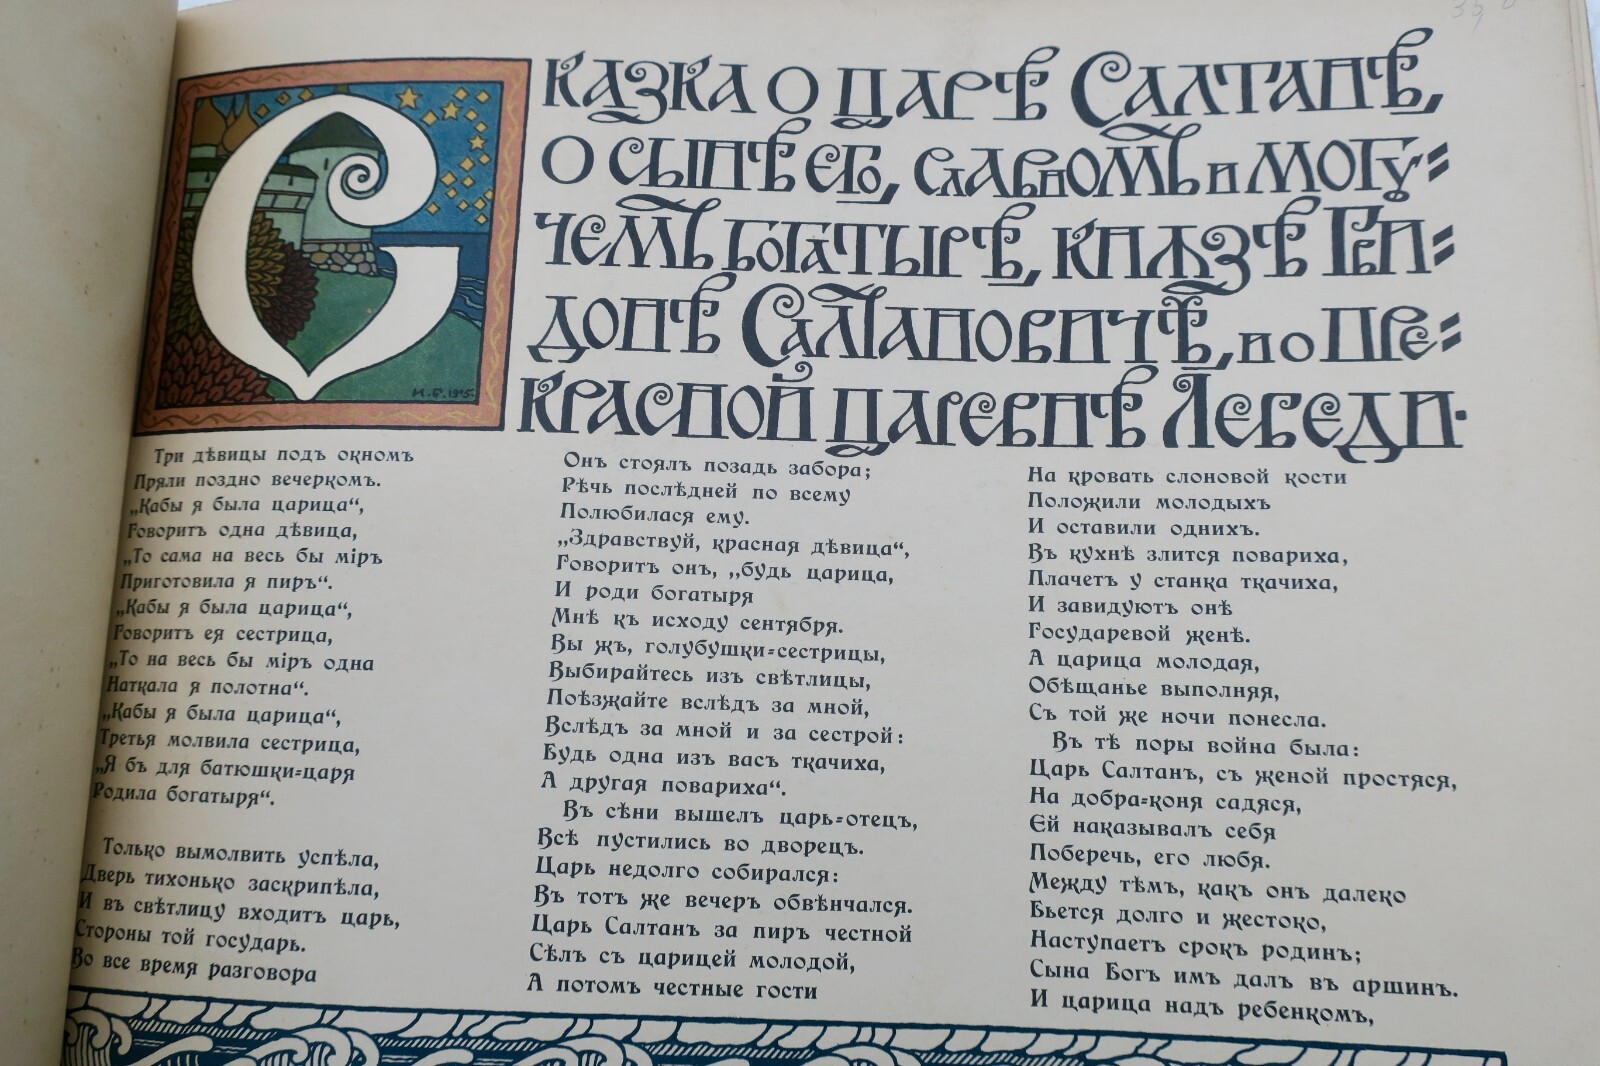 СКАЗКА О ЦАРѢ САЛТАНѢ,
О СЫНѢ ЕГО, СЛАВНОМЪ И МОГУ=
ЧЕМЪ БОГАТЫРѢ, КНЯЗѢ ГВИ=
ДОНѢ САЛТАНОВИЧѢ, И О ПРЕ=
КРАСНОЙ ЦАРЕВНѢ ЛЕБЕДИ.
И.Б. 1905.
Три дѣвицы подъ окномъ
Пряли поздно вечеркомъ.
„Кабы я была царица“,
Говоритъ одна дѣвица,
„То сама на весь бы міръ
Приготовила я пиръ“.
„Кабы я была царица“,
Говоритъ ея сестрица,
„То на весь бы міръ одна
Наткала я полотна“.
„Кабы я была царица“,
Третья молвила сестрица,
„Я бъ для батюшки=царя
Родила богатыря“.
Только вымолвить успѣла,
Дверь тихонько заскрипѣла,
И въ свѣтлицу входитъ царь,
Стороны той государь.
Во все время разговора
Онъ стоялъ позадь забора;
Рѣчь послѣдней по всему
Полюбилася ему.
„Здравствуй, красная дѣвица“,
Говоритъ онъ, „будь царица,
И роди богатыря
Мнѣ къ исходу сентября.
Вы жъ, голубушки=сестрицы,
Выбирайтесь изъ свѣтлицы,
Поѣзжайте вслѣдъ за мной,
Вслѣдъ за мной и за сестрой:
Будь одна изъ васъ ткачиха,
А другая повариха“.
Въ сѣни вышелъ царь=отецъ,
Всѣ пустились во дворецъ.
Царь недолго собирался:
Въ тотъ же вечеръ обвѣнчался.
Царь Салтанъ за пиръ честной
Сѣлъ съ царицей молодой,
А потомъ честные гости
На кровать слоновой кости
Положили молодыхъ
И оставили однихъ.
Въ кухнѣ злится повариха,
Плачетъ у станка ткачиха,
И завидуютъ онѣ
Государевой женѣ.
А царица молодая,
Обѣщанье выполняя,
Съ той же ночи понесла.
Въ тѣ поры война была:
Царь Салтанъ, съ женой простяся,
На добра=коня садяся,
Ей наказывалъ себя
Поберечь, его любя.
Между тѣмъ, какъ онъ далеко
Бьется долго и жестоко,
Наступаетъ срокъ родинъ;
Сына Богъ имъ далъ въ аршинъ.
И царица надъ ребенкомъ,